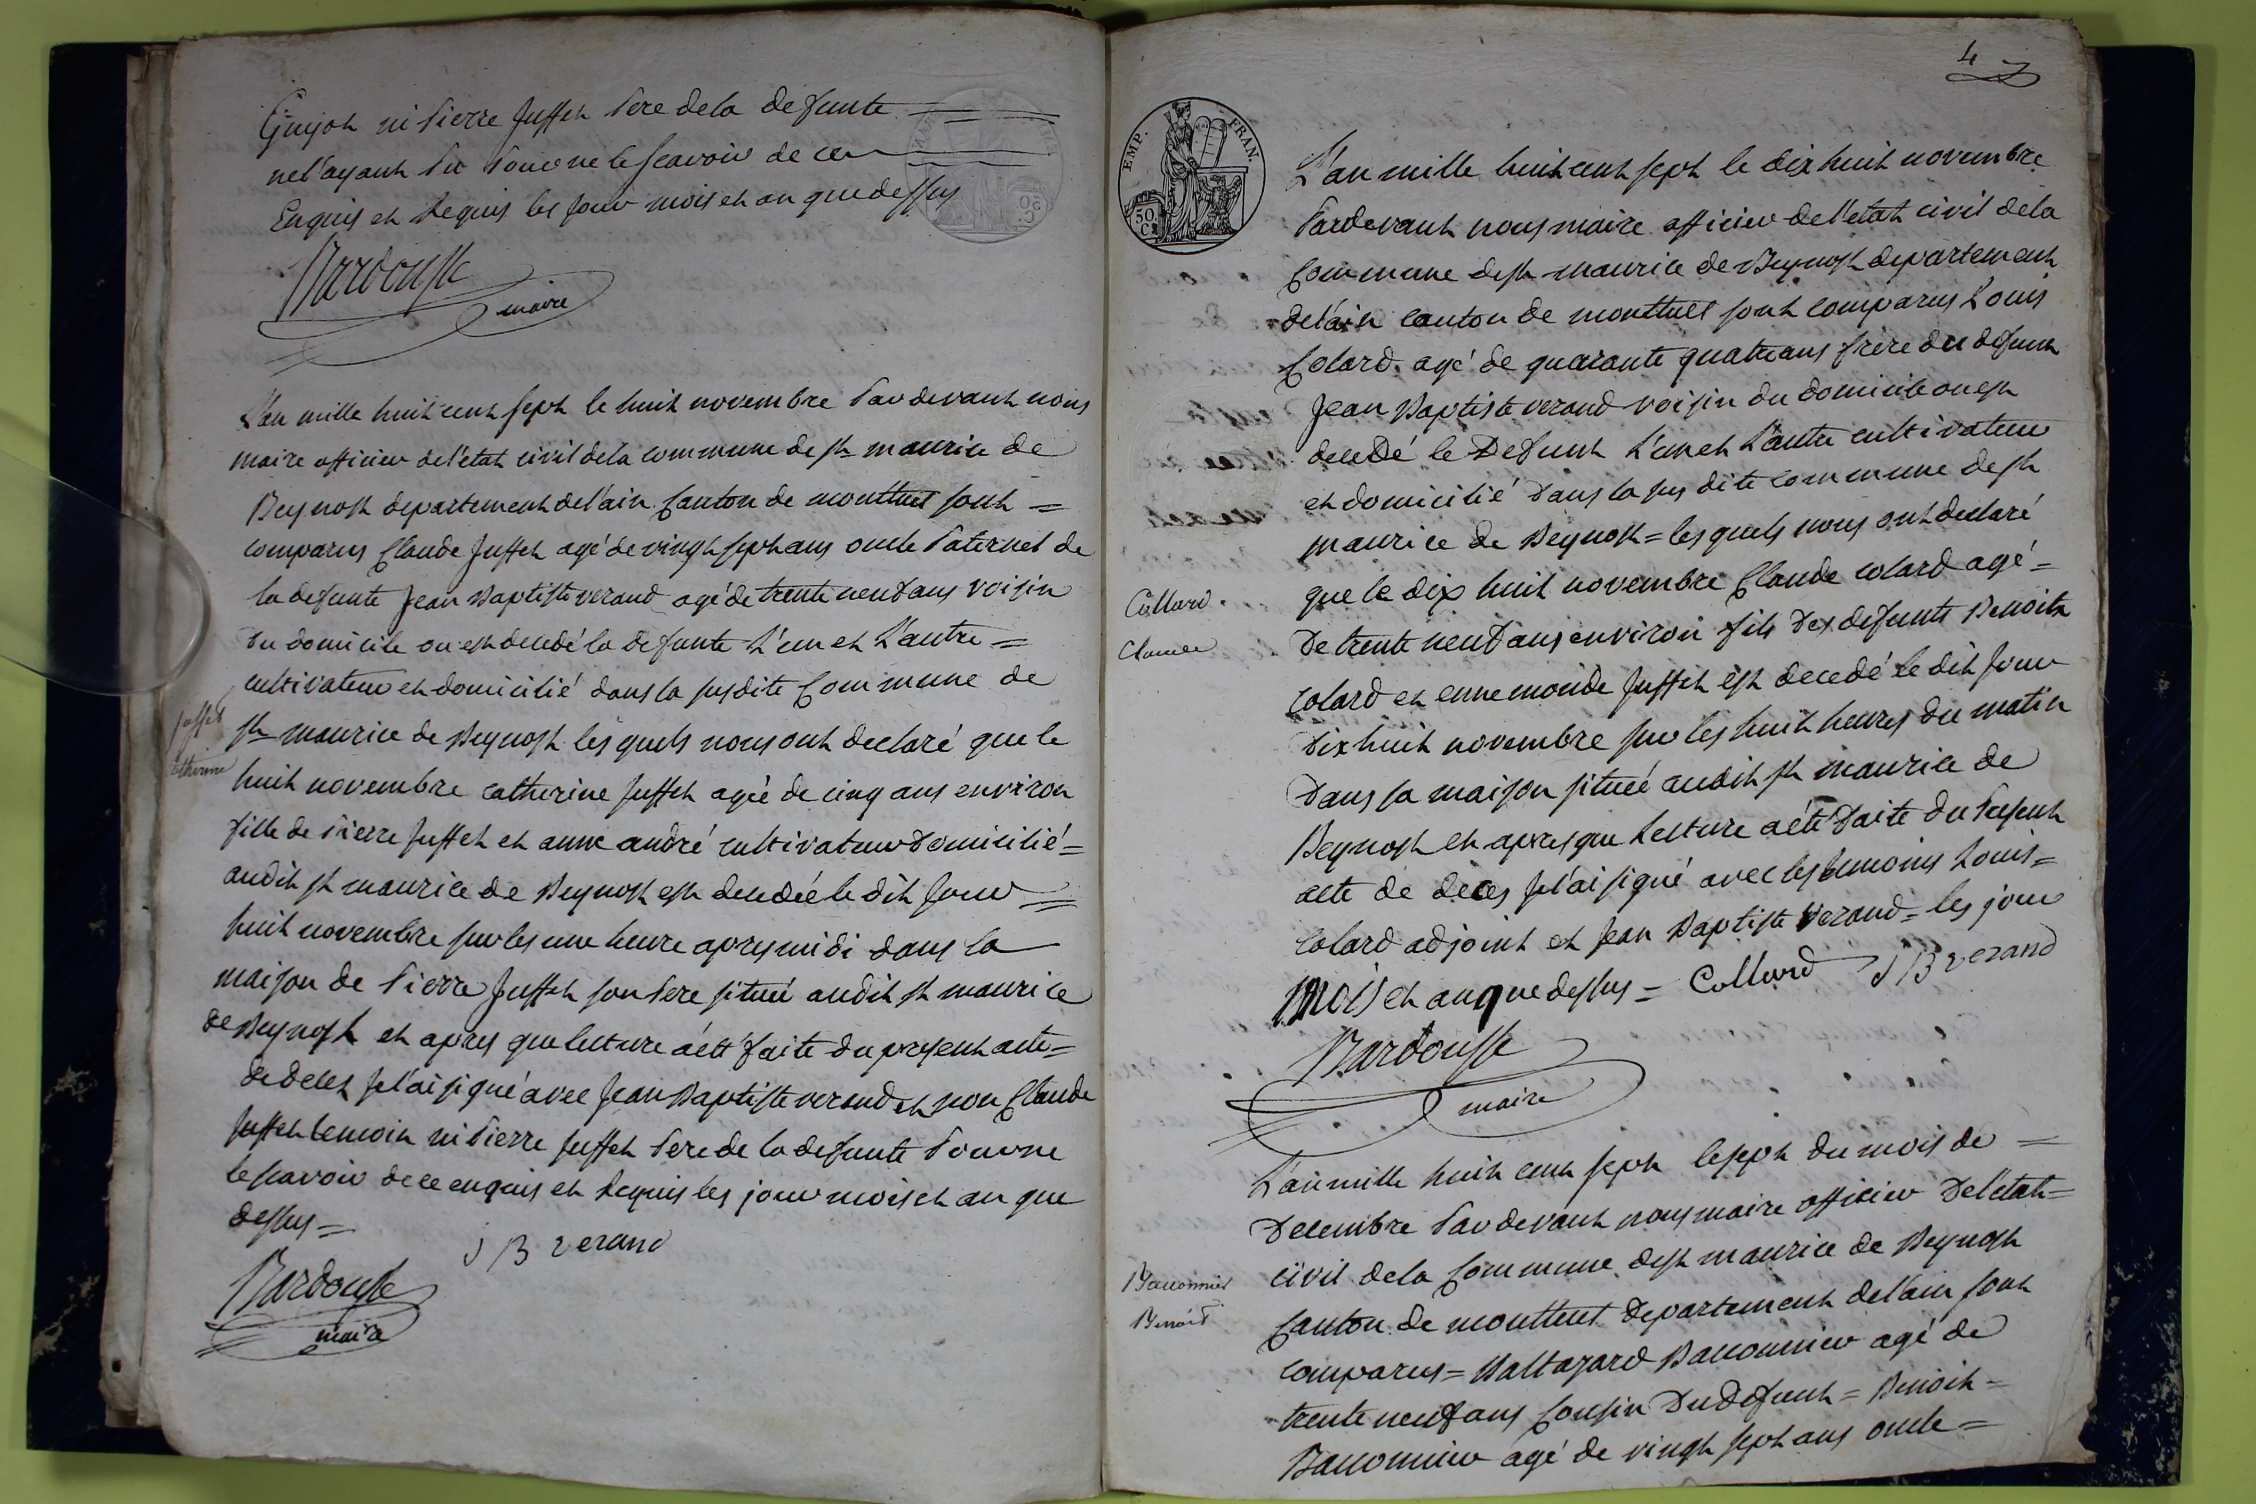 Guyot ni Pierre Juffet Pere dela defunte
nel'ayant Pu Pouvoir ne le scavoir de ce
Enquis et Requis les jour mois et an que dessus
Bardousse
maire
L'an mille huit cent sept le huit novembre Pardevant nous
maire officier de l'état civil dela commune de st maurice de
Beynost departement de l'ain Canton de montluel sont =
comparus Claude Juffet agé de vingt sept ans oncle Paternel de
la defunte Jean Baptiste verand agé de trente neuf ans voisin
du domicile ou est decedé la defunte L'un et L'autre =
cultivateur et domicilié dans la susdite Commune de
st maurice de Beynost lesquels nous ont declaré que le
huit novembre catherine Juffet agée de cinq ans environ
fille de Pierre Juffet et anne andré cultivateur Domicilié =
audit st maurice de Beynost est decedée le dit Jour =
huit novembre sur les une heure apres midi dans la
maison de Pierre Juffet son Pere situeé audit st maurice
de Beynost et apres que lecture a été faite du present acte =
de deces je l'ai signé avec Jean Baptiste verand et non Claude
Juffet temoin ni Pierre Juffet Pere de la defunte Pour ne
le scavoir de ce enquis et Requis les jour mois et an que
dessus =
J B verand
Bardousse
maire
Juffet
catherine
4
EMP. FRAN.
50 C.
L'an mille huit cent sept le dix huit novembre
Pardevant nous maire officier de l'etat civil dela
Commune de st maurice de Beynost departement
de l'ain canton de montluel sont comparus Louis
Colard agé de quarante quatre ans frere du defunt
Jean Baptiste verand voisin du domicile ou est
decedé le Defunt L'un et L'autre cultivateur
et domicilié dans la sus dite commune de st
maurice de Beynost = lesquels nous ont declaré
que le dix huit novembre Claude colard agé =
De trente neuf ans environ fils des defunts Benoit
Colard et ennemonde Juffet est decedé le dit jour
Dix huit novembre sur les huit heures du matin
Dans sa maison situeé audit st maurice de
Beynost et apres que Lecture a été faite du Present
acte de deces je l'ai signé avec les temoins Louis =
Colard adjoint et Jean Baptiste Verand = les jour
mois et an que dessus = Collard J B verand
Bardousse
maire
Collard
Claude
L'an mille huit cent sept le sept du mois de =
Decembre Pardevant nous maire officier De l'etat =
civil dela Commune de st maurice de Beynost
Canton de montluel Departement de l'ain sont
comparus = Baltazard Bacconnier agé de
trente neuf ans Cousin Du Defunt = Benoit =
Bacconnier agé de vingt sept ans oncle =
Bacconnier
Benoit